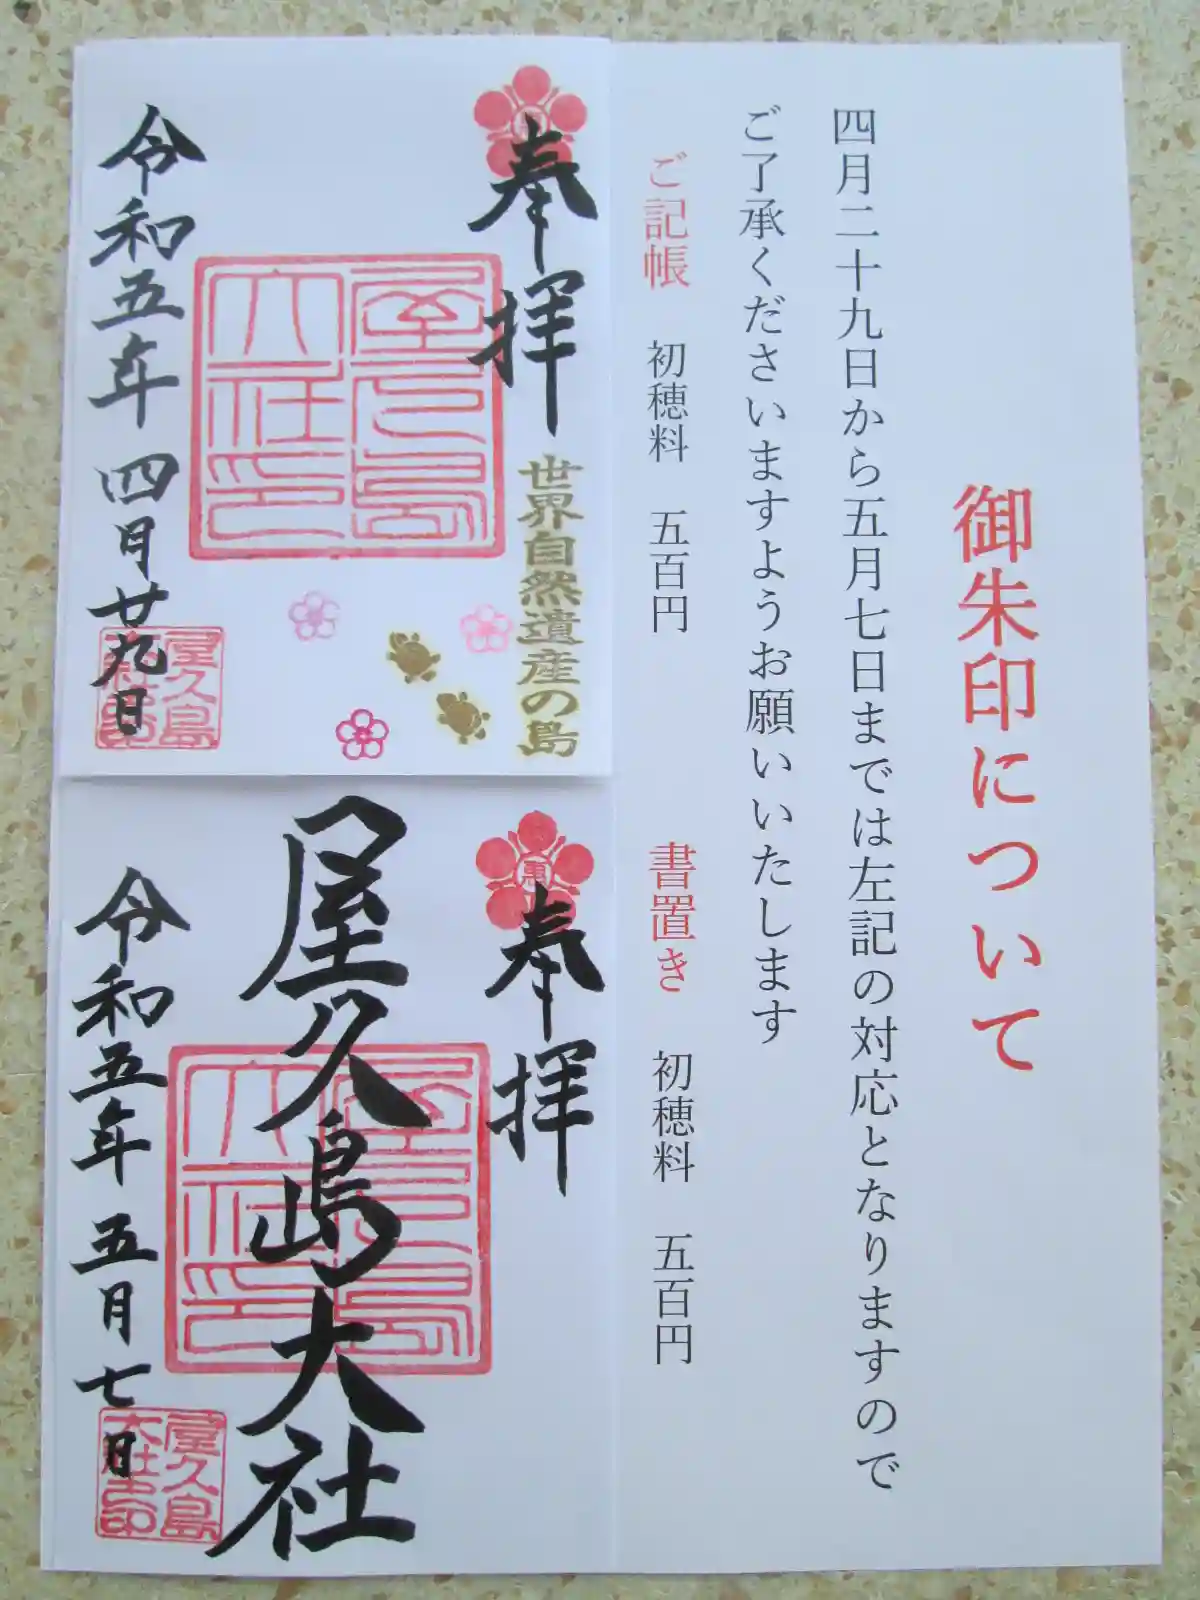 御朱印について
四月二十九日から五月七日までは左記の対応となりますので
ご了承くださいますようお願いいたします
ご記帳 初穂料 五百円
書置き 初穂料 五百円
奉拝
世界自然遺産の島
屋久島
大社印
令和五年 四月廿九日
屋久島
大社之印
奉拝
屋久島大社
屋久島
大社印
令和五年 五月七日
屋久島
大社之印